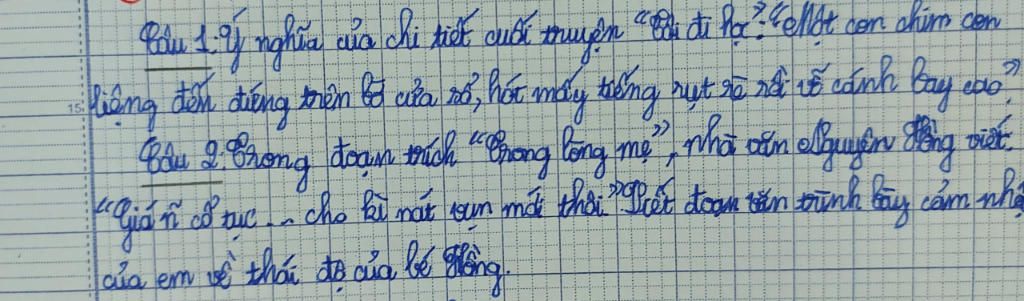 Câu 1. Ý nghĩa của chi tiết cuối truyện "Tôi đi học": "Một con chim con
liệng đến đứng trên bờ cửa sổ, hót mấy tiếng rụt rè rồi vỗ cánh bay cao".
Câu 2. Trong đoạn trích "Trong lòng mẹ", nhà văn Nguyên Hồng viết:
"Giá những cổ tục ... cho kì nát vụn mới thôi" Viết đoạn văn trình bày cảm nhận
của em về thái độ của bé Hồng.